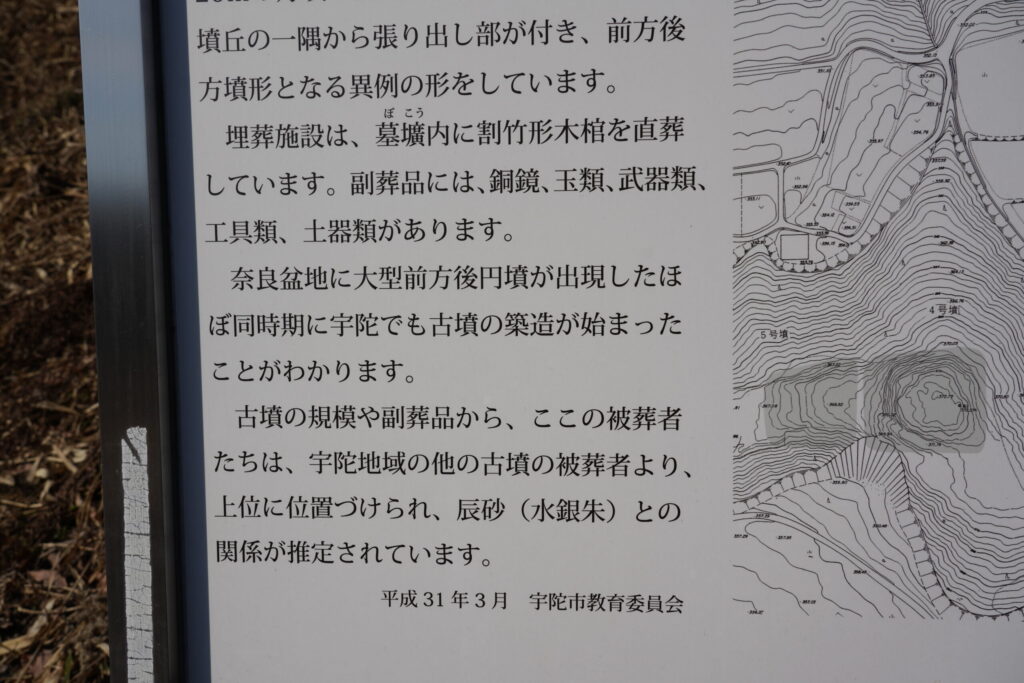 墳丘の一隅から張り出し部が付き、前方後
方墳形となる異例の形をしています。
ぼこう
埋葬施設は、墓壙内に割竹形木棺を直葬
しています。副葬品には、銅鏡、玉類、武器類、
工具類、土器類があります。
奈良盆地に大型前方後円墳が出現したほ
ぼ同時期に宇陀でも古墳の築造が始まった
ことがわかります。
古墳の規模や副葬品から、ここの被葬者
たちは、宇陀地域の他の古墳の被葬者より、
上位に位置づけられ、辰砂（水銀朱）との
関係が推定されています。
平成31年3月　宇陀市教育委員会
4号墳
5号墳